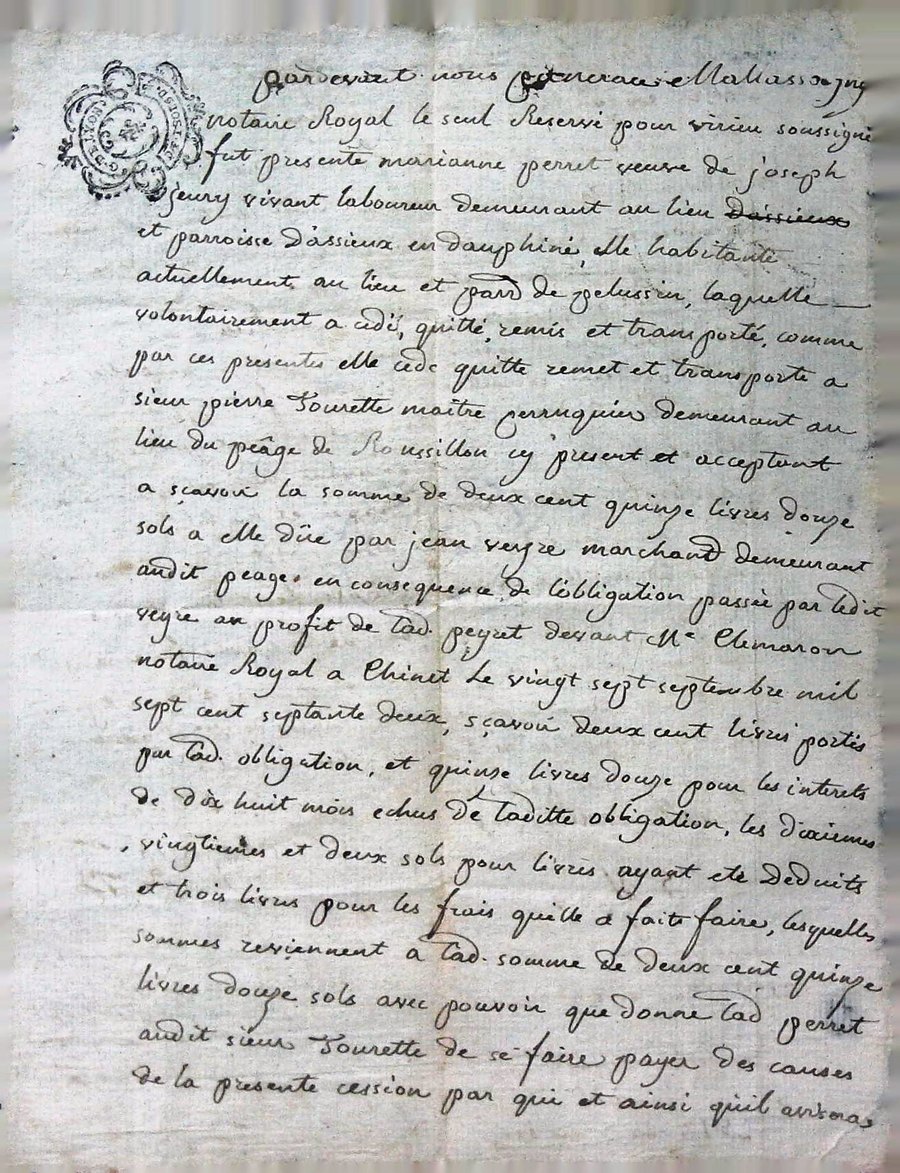 G. DE LYON
pardevant nous Mallassagny
notaire Royal le seul Reservé pour virieu soussigné
fut presente marianne perret veuve de joseph
jeury vivant laboureur demeurant au lieu dassieux
et parroisse Dassieux en dauphiné, elle habitante
actuellement au lieu et parr de pelussin, laquelle
volontairement a cédé, quitté, remis et transporté, comme
par ces presentes elle cede quitte remet et transporte a
sieur pierre Tourette maitre perruquier demeurant au
lieu du peâge de Roussillon cy present et acceptant
a sçavoir la somme de deux cent quinze livres douze
sols a elle düe par jean veyre marchand demeurant
audit peage, en consequence de l'obligation passée par ledit
veyre au profit de lad. peyret devant Me Clemaron
notaire Royal a Chinet le vingt sept septembre mil
sept cent septante deux, sçavoir deux cent livres portés
par lad. obligation, et quinze livres douze pour les interets
de dix huit mois echus de laditte obligation, les dixiemes
, vingtiemes et deux sols pour livres ayant eté Deduits
et trois livres pour les frais quelle a faits faire, lesquelles
sommes reviennent a lad. somme de deux cent quinze
livres douze sols avec pouvoir que donne lad perret
audit sieur Tourette de se faire payer des causes
de la presente cession par qui et ainsi qu'il avisera,